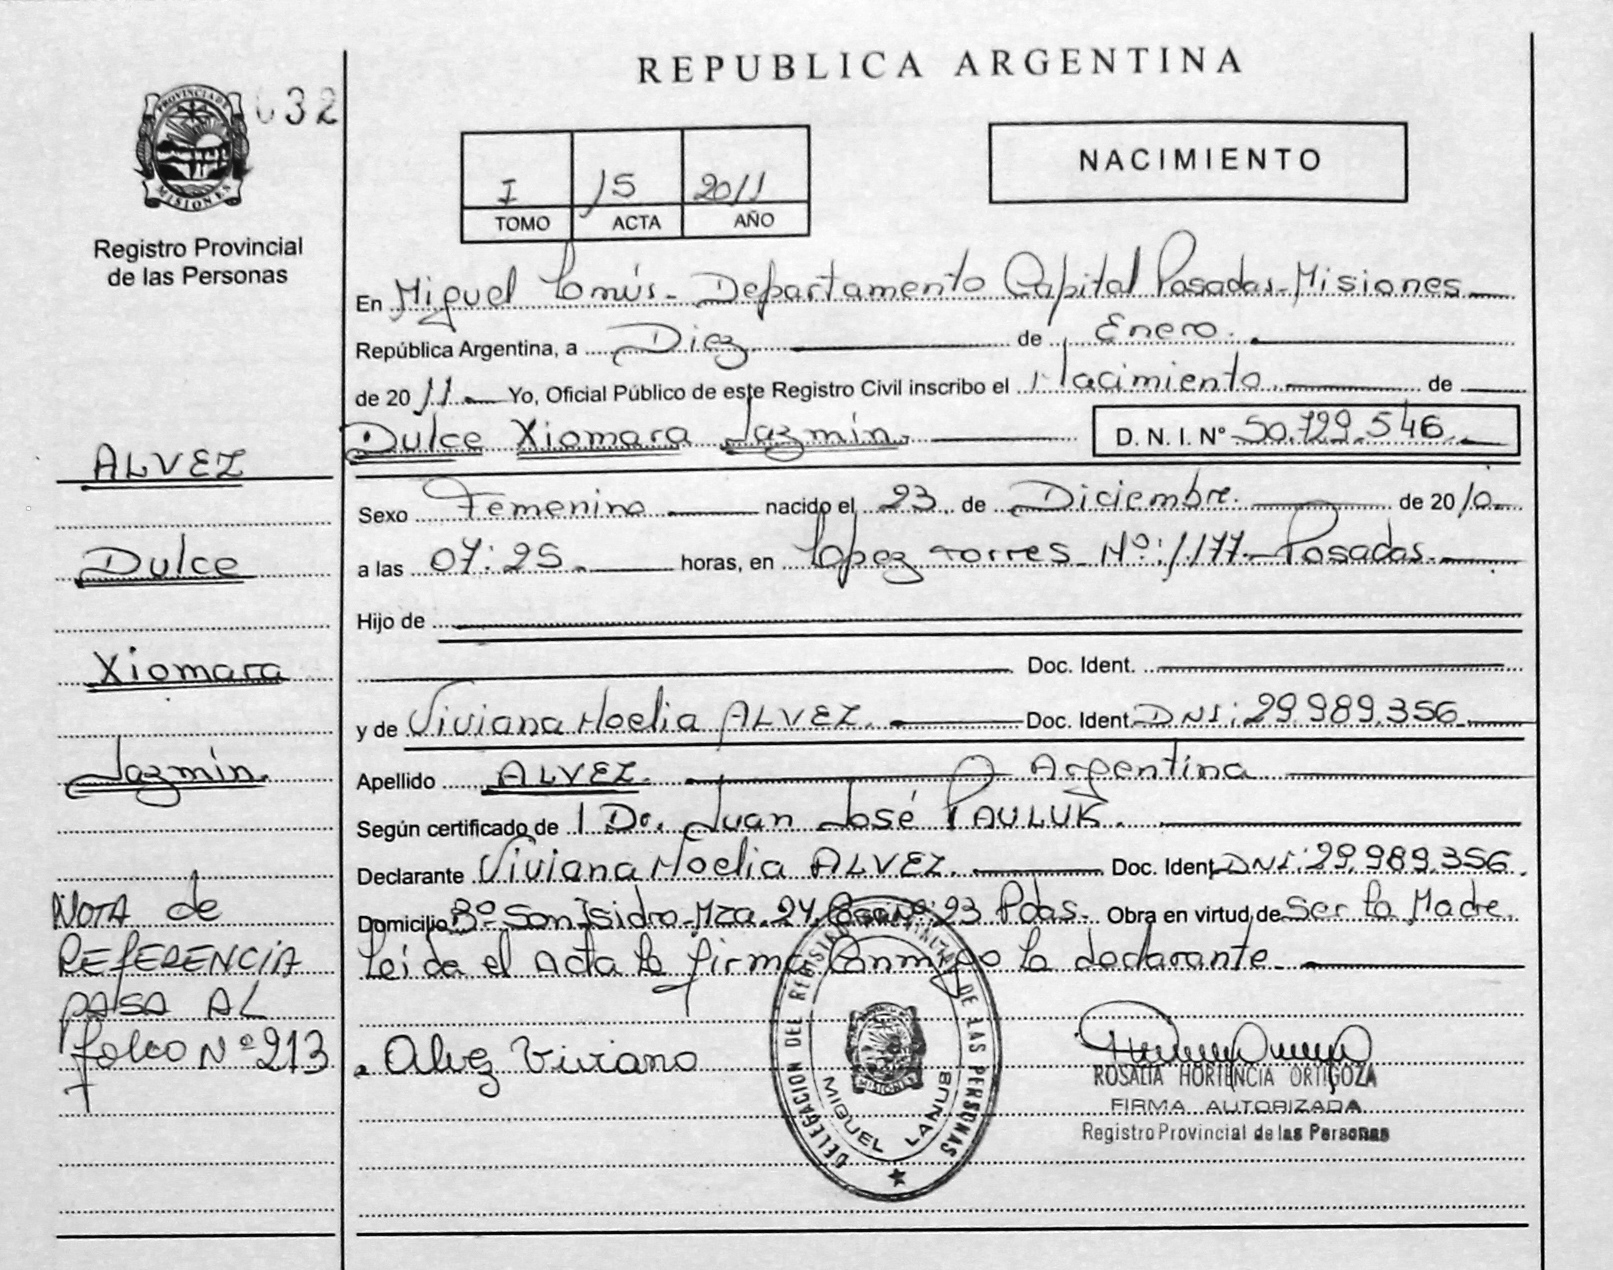 REPUBLICA ARGENTINA
PROVINCIA DE
MISIONES
032
Registro Provincial
de las Personas
I 15 2011
TOMO ACTA AÑO
NACIMIENTO
En Miguel Lanús - Departamento Capital Posadas - Misiones
República Argentina, a Diez de Enero.
de 2011 Yo, Oficial Público de este Registro Civil inscribo el Nacimiento. de
Dulce Xiomara Jazmín. D. N. I. N° 50.729.546.
ALVEZ
Sexo Femenino nacido el 23. de Diciembre. de 2010
Dulce
a las 07:25. horas, en Lopez torres Nº: 1.177 - Posadas.
Hijo de
Xiomara
Doc. Ident.
y de Viviana Noelia ALVEZ. Doc. Ident. DNI: 29.989.356
Jazmín.
Apellido ALVEZ. Argentina
Según certificado de Dr. Juan José PAULUK.
Declarante Viviana Noelia ALVEZ. Doc. Ident. DNI: 29.989.356.
NOTA de
REFERENCIA
PASA AL
folio Nº 213
Domicilio Bº San Isidro - Mza. 24. Casa Nº: 23 Pdas. Obra en virtud de Ser la Madre.
Leída el acta la firma conmigo la declarante.
Alvez Viviana
DELEGACION DEL REGISTRO PROVINCIAL DE LAS PERSONAS
MISIONES
MIGUEL LANUS
ROSALIA HORTENCIA ORTIGOZA
FIRMA AUTORIZADA
Registro Provincial de las Personas